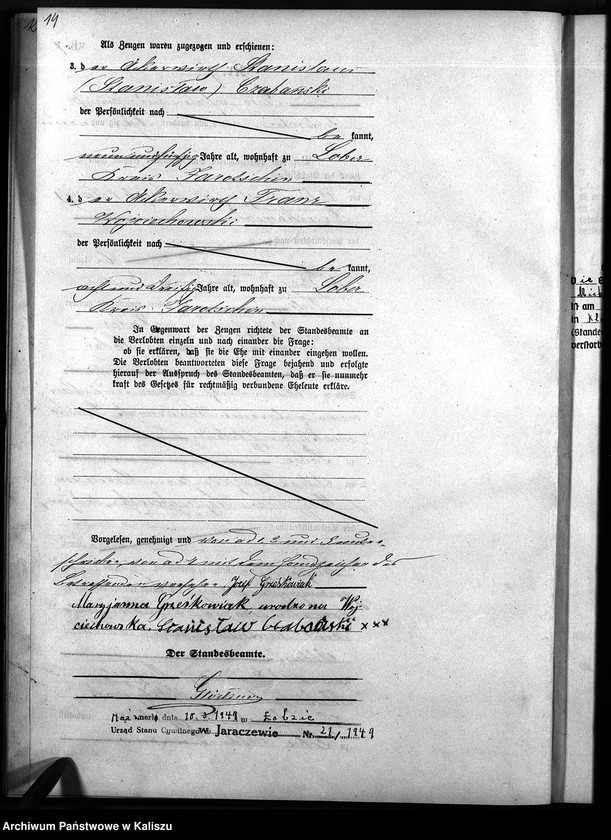 19
Als Zeugen waren zugezogen und erschienen:
3. der Ackerwirth Stanislaus
(Stanisław) Czabański
der Persönlichkeit nach
be kannt,
neunundfünfzig Jahre alt, wohnhaft zu Lober
Kreis Jarotschin
4. der Ackerwirth Franz
Woyciechowski
der Persönlichkeit nach
be kannt,
achtunddreißig Jahre alt, wohnhaft zu Lober
Kreis Jarotschin
In Gegenwart der Zeugen richtete der Standesbeamte an
die Verlobten einzeln und nach einander die Frage:
ob sie erklären, daß sie die Ehe mit einander eingehen wollen.
Die Verlobten beantworteten diese Frage bejahend und erfolgte
hierauf der Ausspruch des Standesbeamten, daß er sie nunmehr
kraft des Gesetzes für rechtmäßig verbundene Eheleute erkläre.
Vorgelesen, genehmigt und von ad 1, 2 und 3 unter-
schrieben, von ad 4 mit dem Handzeichen des
Betreffenden versehen Józef Grześkowiak
Maryjanna Grześkowiak urodzona Woj
ciechowska. Stanisław Czabański xxx
Der Standesbeamte.
Mąż zmarł dnia 10.3.1949 w Łobzie
Urząd Stanu Cywilnego w Jaraczewie Nr. 21/1949
die
in am
in
(Stande
verstorb
Archiwum Państwowe w Kaliszu